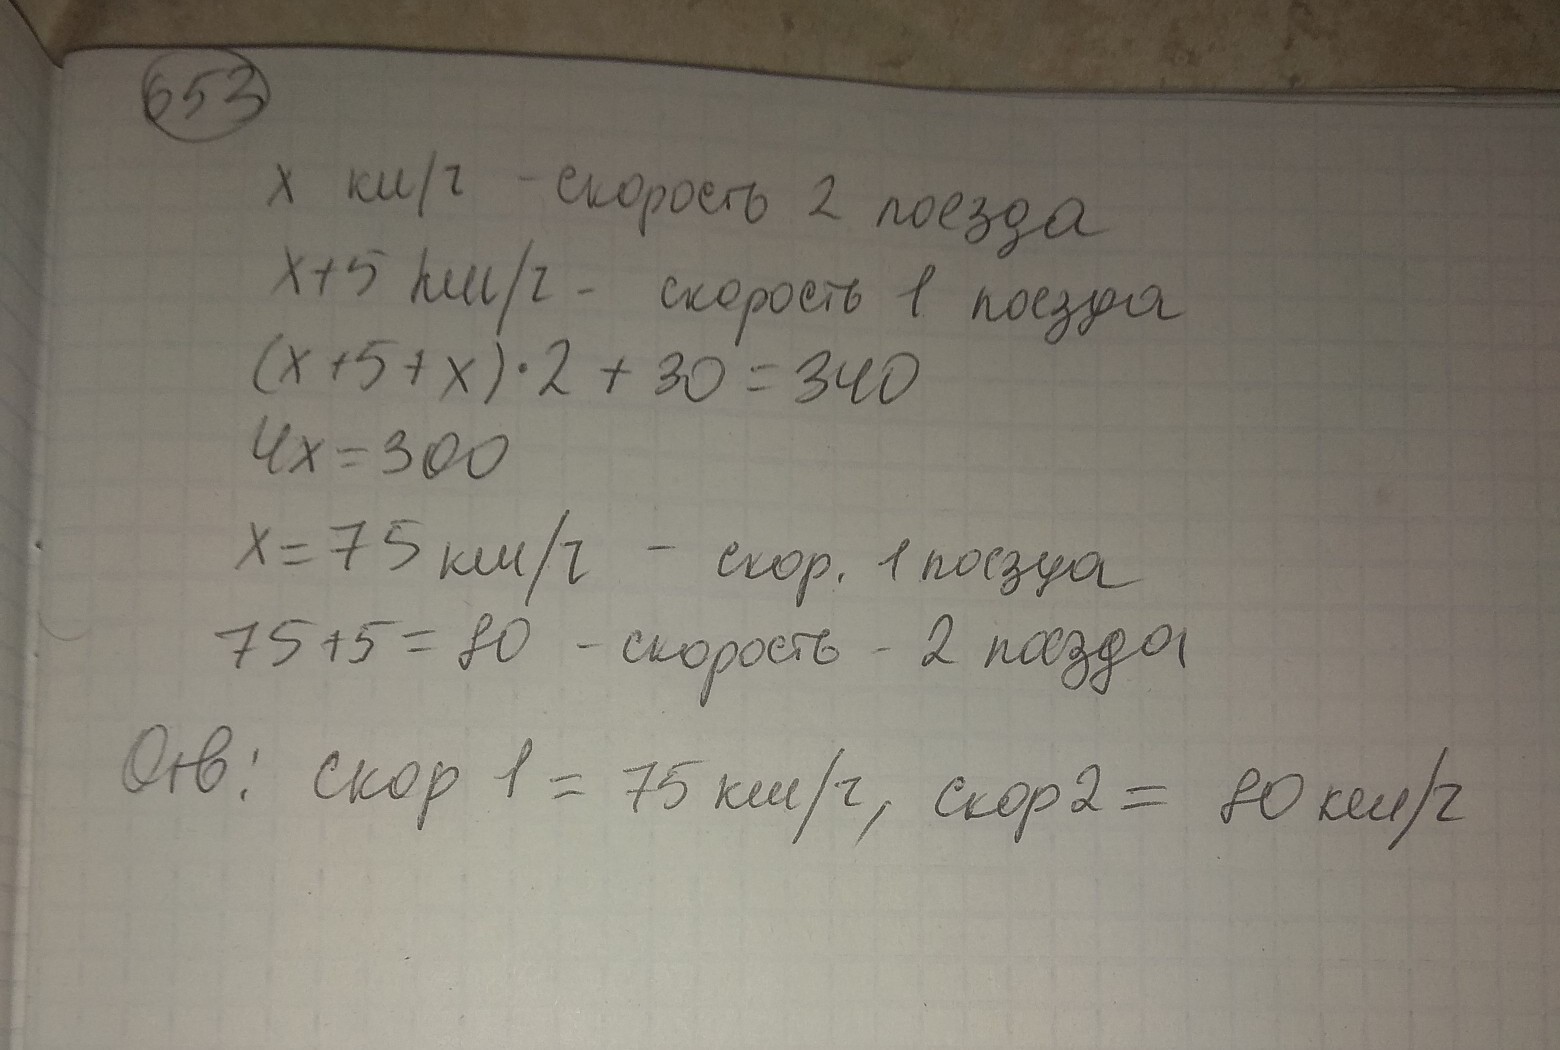 653
x км/ч - скорость 2 поезда
x+5 км/ч - скорость 1 поезда
(x+5+x)·2+30=340
4x=300
x=75 км/ч - скор. 1 поезда
75+5=80 - скорость - 2 поезда
Отв: скор 1 = 75 км/ч, скор 2 = 80 км/ч